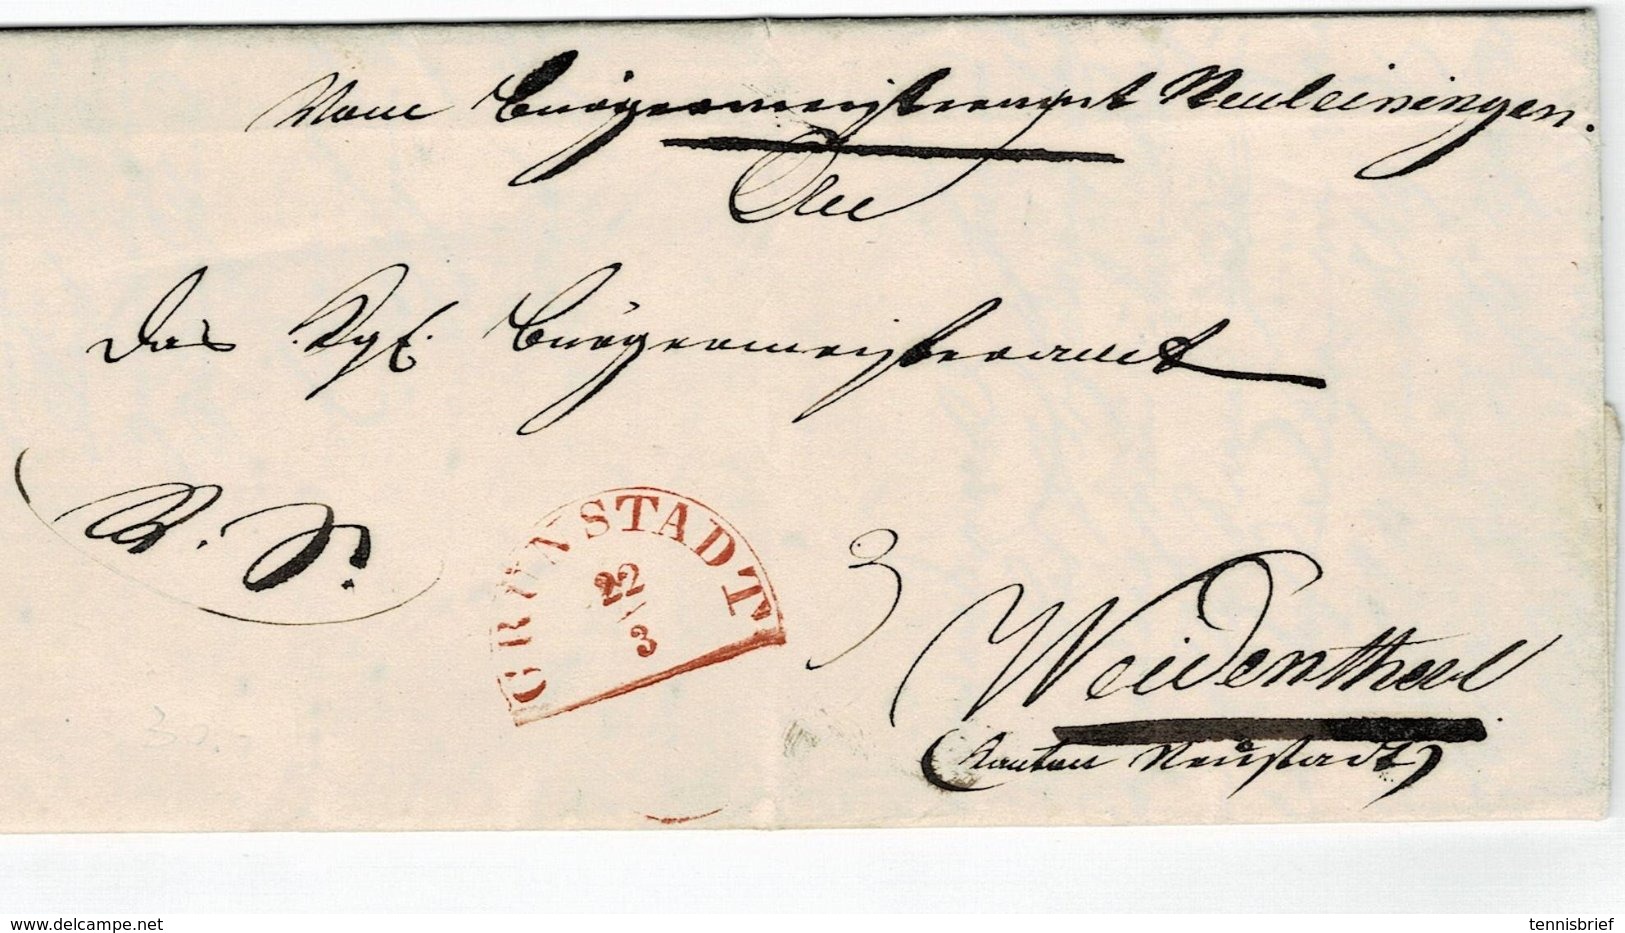 Vom Bürgermeisteramt Neuleiningen.
An
das Kgl. Bürgermeisteramt
R. S.
GRÜNSTADT
22
3
3
Weidenthal
(Kanton Neustadt)
delcampe.net
tennisbrief